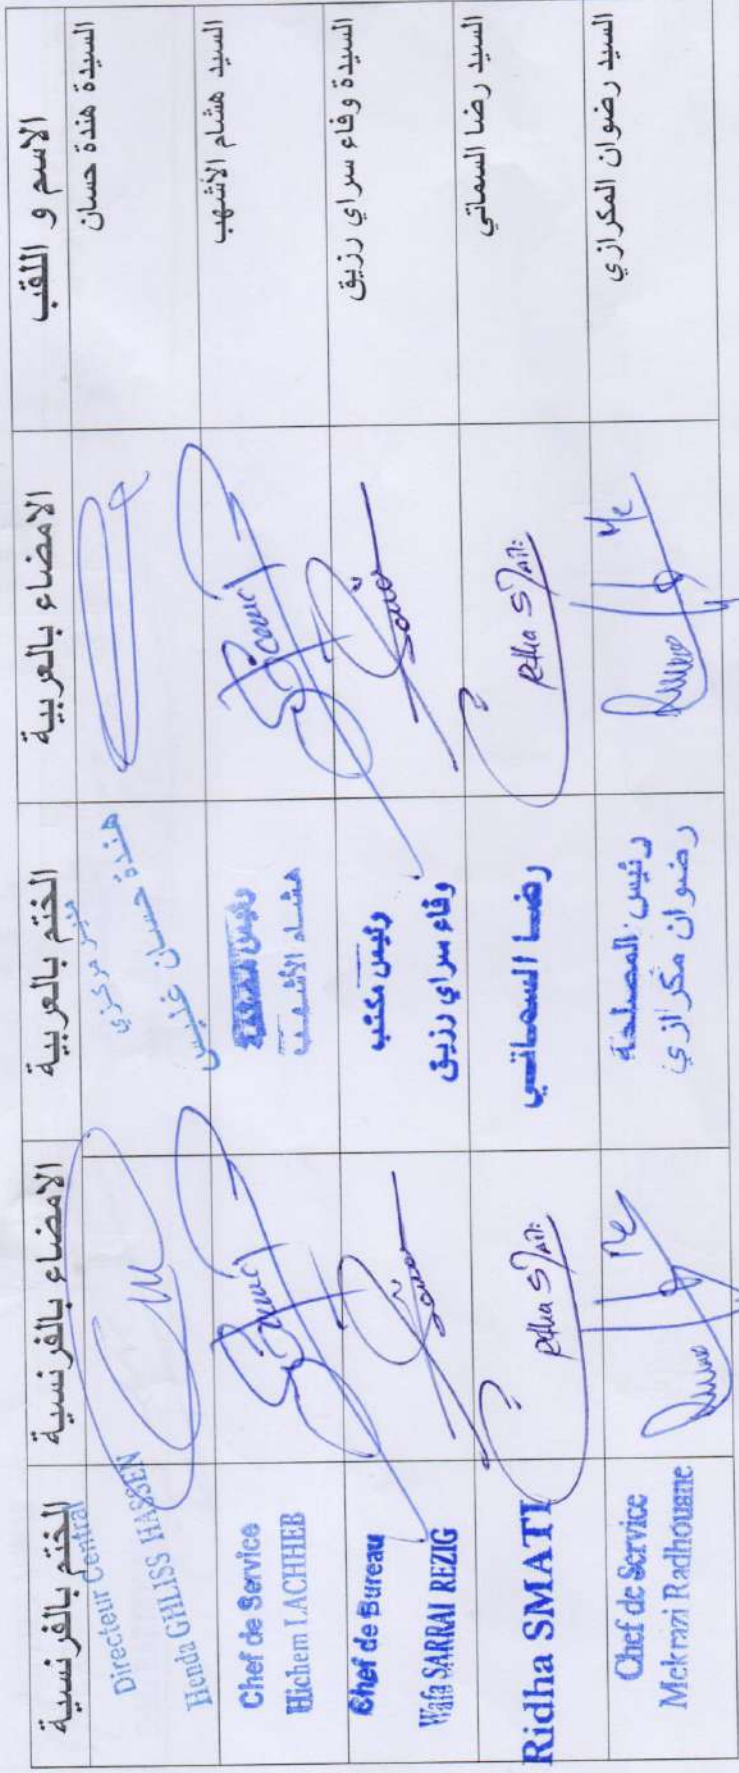 الاسم و اللقب
الامضاء بالعربية
الختم بالعربية
الامضاء بالفرنسية
الختم بالفرنسية
السيدة هندة حسان
مدير مركزي
هندة حسان غليس
Directeur Central
Henda GHLISS HASSEN
السيد هشام الأشهب
هشام الأشهب
Chef de Service
Hichem LACHHEB
السيدة وفاء سراي رزيق
رئيس مكتب
وفاء سراي رزيق
Chef de Bureau
Wafa SARRAI REZIG
السيد رضا السماتي
Ridha
رضا السماتي
Ridha
Ridha SMATI
السيد رضوان المكرازي
رئيس المصلحة
رضوان مكرازي
Chef de Service
Mekrazi Radhouane